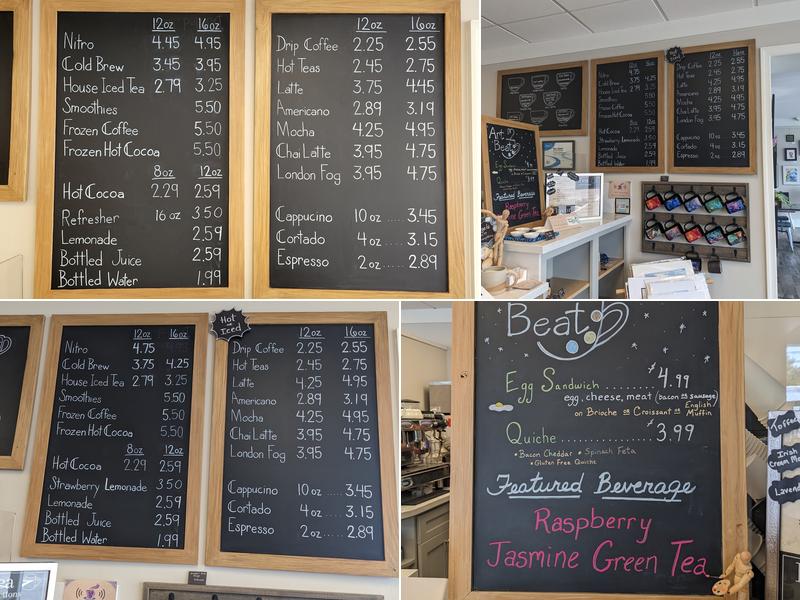 12oz 16oz
Nitro 4.45 4.95
Cold Brew 3.45 3.95
House Iced Tea 2.79 3.25
Smoothies 5.50
Frozen Coffee 5.50
Frozen Hot Cocoa 5.50
8oz 12oz
Hot Cocoa 2.29 2.59
Refresher 16 oz 3.50
Lemonade 2.59
Bottled Juice 2.59
Bottled Water 1.99
12oz 16oz
Drip Coffee 2.25 2.55
Hot Teas 2.45 2.75
Latte 3.75 4.45
Americano 2.89 3.19
Mocha 4.25 4.95
Chai Latte 3.95 4.75
London Fog 3.95 4.75
Cappucino 10 oz ..... 3.45
Cortado 4 oz ..... 3.15
Espresso 2 oz ..... 2.89
Art
Beat
Featured Beverage
Raspberry
Jasmine Green Tea
12oz 16oz
Nitro 4.75
Cold Brew 3.75 4.25
House Iced Tea 2.79 3.25
Smoothies 5.50
Frozen Coffee 5.50
Frozen Hot Cocoa 5.50
8oz 12oz
Hot Cocoa 2.29 2.59
Strawberry Lemonade 3.50
Lemonade 2.59
Bottled Juice 2.59
Bottled Water 1.99
Hot
or
Iced
12oz 16oz
Drip Coffee 2.25 2.55
Hot Teas 2.45 2.75
Latte 4.25 4.95
Americano 2.89 3.19
Mocha 4.25 4.95
Chai Latte 3.95 4.75
London Fog 3.95 4.75
Cappucino 10 oz ..... 3.45
Cortado 4 oz ..... 3.15
Espresso 2 oz ..... 2.89
Beat
Egg Sandwich ........ $4.99
egg, cheese, meat (bacon or sausage)
on Brioche or Croissant or English Muffin
Quiche ............... $3.99
• Bacon Cheddar • Spinach Feta
• Gluten Free Quiche
Featured Beverage
Raspberry
Jasmine Green Tea
Toffee
Irish
Cream